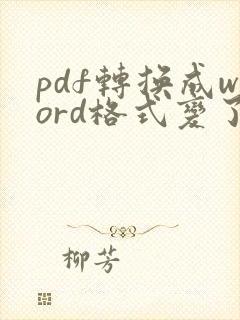 pdf轉換成w
ord格式變了
柳芳